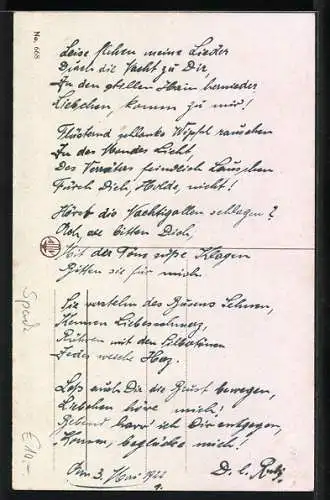 No. 668
Leise flehen meine Lieder
Durch die Nacht zu Dir,
In den stillen Hain hernieder
Liebchen, komm zu mir!
Flüsternd schlanke Wipfel rauschen
In des Mondes Licht,
Des Verräters feindlich Lauschen
Fürch Dich, Holde, nicht!
Hörst die Nachtigallen schlagen?
Ach, sie bitten Dich,
Mit der Töne süße Klagen
Bitten sie für mich.
Sie verstehn des Busens Sehnen,
Kennen Liebesschmerz,
Rühren mit den Silbertönen
Jedes weiche Herz.
Laß auch Dir die Brust bewegen,
Liebchen höre mich!
Bebend harr' ich Dir entgegen,
Komm, beglücke mich!
3. Mai 1922
D. l.
€ 10.-